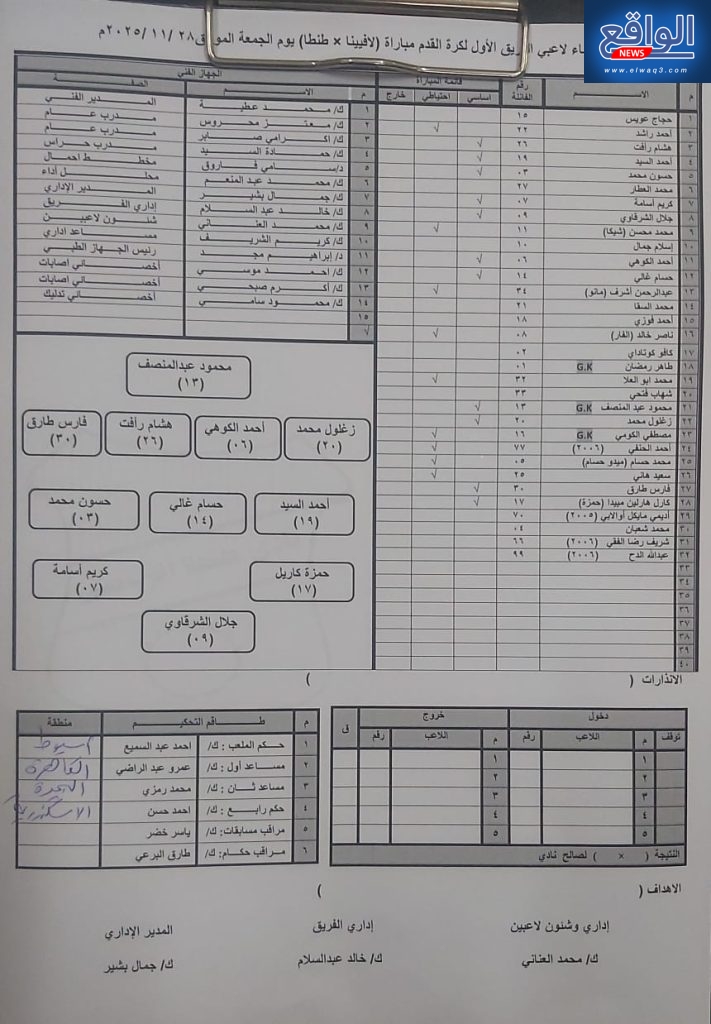 الواقع
NEWS
www.elwaq3.com
لاعبي الفريق الأول لكرة القدم مباراة (لافيينا × طنطا) يوم الجمعة الموافق ٢٨ /١١ /٢٠٢٥م
م الاســـم رقم الفانلة قائمة المباراة
اساسي احتياطي خارج
١ حجاج عويس ١٥
٢ أحمد راشد ٢٢ √
٣ هشام رأفت ٢٦ √
٤ أحمد السيد ١٩ √
٥ حسون محمد ٠٣ √
٦ محمد العطار ٢٧
٧ كريم أسامة ٠٧ √
٨ جلال الشرقاوي ٠٩ √
٩ محمد محسن (شيكا) ١١ √
١٠ إسلام جمال ١٠
١١ أحمد الكوهي ٠٦ √
١٢ حسام غالي ١٤ √
١٣ عبدالرحمن أشرف (مانو) ٣٤ √
١٤ محمد السقا ٢١
١٥ أحمد فوزي ١٨
١٦ ناصر خالد (الفار) ٠٨ √
١٧ كافو كوتاداي ٠٢
١٨ طاهر رمضان G.K ٠١
١٩ محمد ابو العلا ٣٢ √
٢٠ شهاب فتحي ٣٣
٢١ محمود عبد المنصف G.K ١٣ √
٢٢ زغلول محمد ٢٠ √
٢٣ مصطفي الكومي G.K ١٦ √
٢٤ أحمد الحنفي (٢٠٠٦) ٧٧ √
٢٥ محمد حسام (ميدو حسام) ٠٥ √
٢٦ سعيد هاني ٢٥ √
٢٧ فارس طارق ٣٠ √
٢٨ كارل هارلين مبيدا (حمزة) ١٧ √
٢٩ أديمي مايكل أوالابي (٢٠٠٥) ٧٠
٣٠ محمد شعبان ٠٤
٣١ شريف رضا الفقي (٢٠٠٦) ٦٦
٣٢ عبدالله الدح (٢٠٠٦) ٩٩
٣٣
٣٤
٣٥
٣٦
٣٧
٣٨
٣٩
٤٠
الجهاز الفني
م الاســـم الصفـــة
١ ك/ محمد عطية المدير الفني
٢ ك/ معتز محروس مدرب عام
٣ ك/ أكرامي صابر مدرب عام
٤ ك/ حمادة السيد مدرب حراس
٥ د/سامي فاروق مخطط احمال
٦ ك/ محمد عبد المنعم محلل أداء
٧ ك/ جمال بشير المدير الإداري
٨ ك/ خالد عبد السلام إداري الفريق
٩ ك/ محمد العناني شئون لاعبين
١٠ ك/ كريم الشريف مساعد اداري
١١ د/ إبراهيم مجد رئيس الجهاز الطبي
١٢ ك/ احمد موسي أخصائي اصابات
١٣ ك/ أكرم صبحي أخصائي اصابات
١٤ ك/ محمود سامي أخصائي تدليك
١٥
√
محمود عبدالمنصف
(١٣)
زغلول محمد
(٢٠)
أحمد الكوهي
(٠٦)
هشام رأفت
(٢٦)
فارس طارق
(٣٠)
أحمد السيد
(١٩)
حسام غالي
(١٤)
حسون محمد
(٠٣)
حمزة كاريل
(١٧)
كريم أسامة
(٠٧)
جلال الشرقاوي
(٠٩)
الانذارات ( )
دخول خروج ق
توقف م اللاعب رقم م اللاعب رقم
١ ١
٢ ٢
٣ ٣
٤ ٤
٥ ٥
النتيجة ( × ) لصالح نادي
م طاقم التحكيم منطقة
١ حكم الملعب : ك/ احمد عبد السميع أسيوط
٢ مساعد أول : ك/ عمرو عبد الراضي القاهرة
٣ مساعد ثان : ك/ محمد رمزي البحيرة
٤ حكم رابع : ك/ احمد حسن الاسكندرية
٥ مراقب مسابقات: ك/ ياسر خضر
٦ مراقب حكام: ك/ طارق البرعي
الاهداف ( )
إداري وشئون لاعبين
إداري الفريق
المدير الإداري
ك/ محمد العناني
ك/ خالد عبدالسلام
ك/ جمال بشير